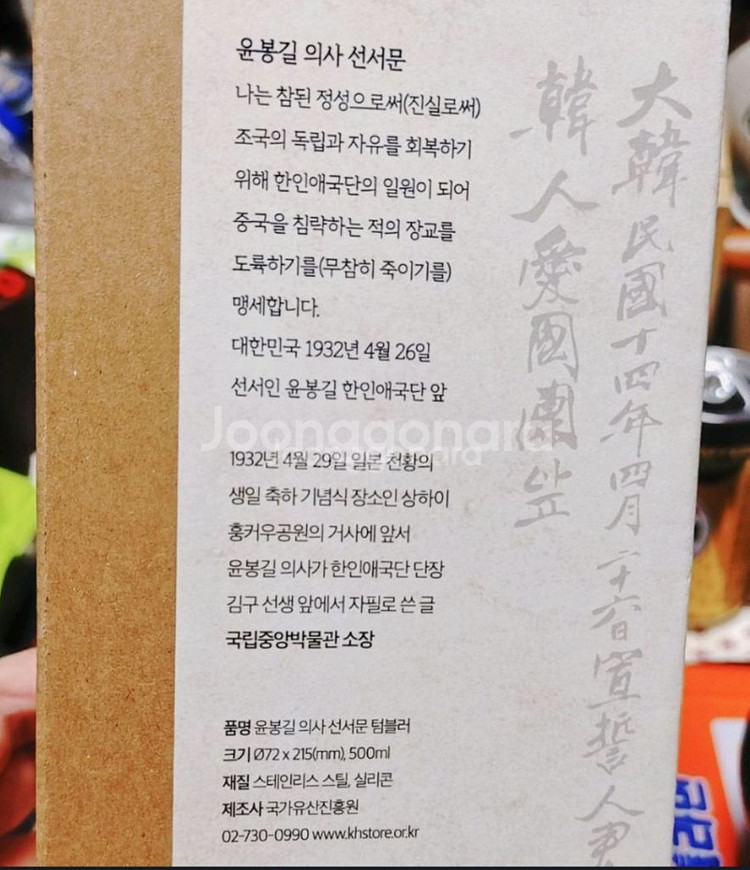 윤봉길 의사 선서문
나는 참된 정성으로써(진실로써)
조국의 독립과 자유를 회복하기
위해 한인애국단의 일원이 되어
중국을 침략하는 적의 장교를
도륙하기를(무참히 죽이기를)
맹세합니다.
대한민국 1932년 4월 26일
선서인 윤봉길 한인애국단 앞
1932년 4월 29일 일본 천황의
생일 축하 기념식 장소인 상하이
훙커우공원의 거사에 앞서
윤봉길 의사가 한인애국단 단장
김구 선생 앞에서 자필로 쓴 글
국립중앙박물관 소장
품명 윤봉길 의사 선서문 텀블러
크기 Ø72 x 215(mm), 500ml
재질 스테인리스 스틸, 실리콘
제조사 국가유산진흥원
02-730-0990 www.khstore.or.kr
大韓民國十四年四月二十六日宣誓人尹
韓人愛國團
Joonggonara